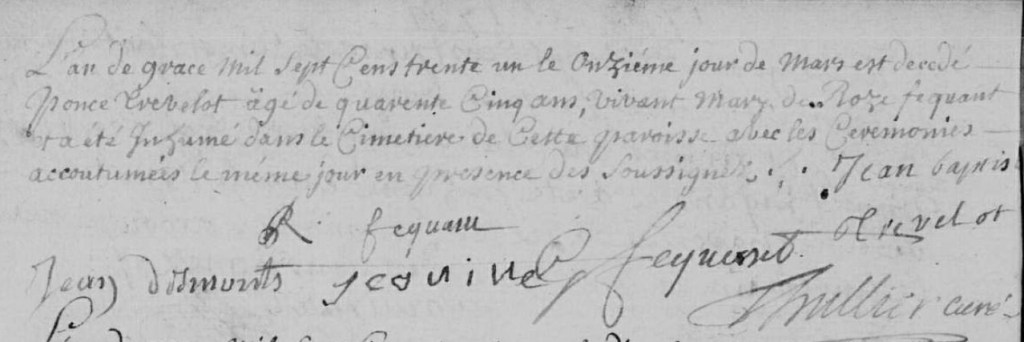 L'an de grace mil sept Cens trente un le Onziéme jour de Mars est decedé
Ponce Trevelot âgé de quarente Cinq ans, vivant Mary de Roze fequant
et a été Inhumé dans le Cimetiere de Cette paroisse avec les Ceremonies
accoutumées le méme jour en presence des Soussignez. Jean baptis
R fequant Trevelot
Jean desmonts
Thullier curé